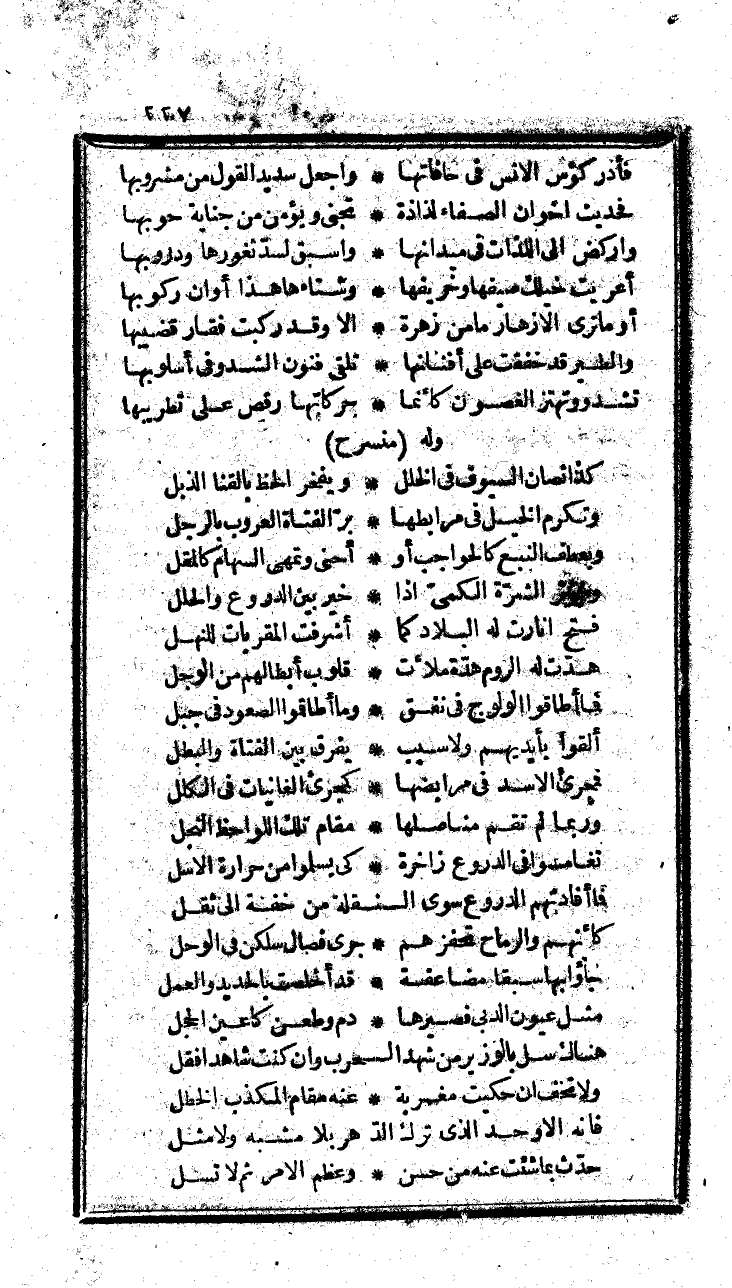 ٢٢٧
فأدر كؤس الانس فى حافاتها * واجعل سديد القول من مشروبها
فحديث اخوان الصفاء لذاذة * تجنى ويؤمن من جناية حوبها
واركض الى اللذات فى ميدانها * واسبق لسد ثغورها ودروبها
أعريت خيلك صيفها وخريفها * وشتاءها هذا أوان ركوبها
أو ماترى الازهار مامن زهرة * الا وقد ركبت فقار قضيبها
والطير قد خفقت على أفنانها * تلقى فنون الشدو فى أسلوبها
تشدو وتهتز الغصون كأنما * حركاتها رقص على تطريبها
وله (منسرح)
كذا تصان السيوف فى الخلل * ويفخر الخط بالقنا الذبل
وتكرم الخيل فى مرابطها * بر الفتاة العروب بالرجل
ويعطف النبع كالحواجب أو * أحنى وتمهى السهام كالمقل
النثرة الكمى اذا * خير بين الدروع والحلل
فتح انارت له البلاد كما * أشرفت المقربات للنهل
هدت له الروم هدة ملأت * قلوب أبطالهم من الوجل
فما أطاقوا الولوج فى نفق * وما أطاقوا الصعود فى جبل
ألقوا بأيديهم ولا سبب * يفرق بين الفتاة والبطل
فمجرئ الاسد فى مرابضها * كمجرئ الغانيات فى الكلل
وربما لم تقم مناصلها * مقام تلك اللواحظ النجل
تغامسوا فى الدروع زاخرة * كى يسلوا من حرارة الاسل
فما أفادتهم الدروع سوى النقلة من خفة الى ثقل
كأنهم والرماح تحفزهم * جرى فصال سلكن فى الوحل
نجاؤا بها سبقا مضاعفة * قد أخلصت بالحديد والعمل
مثل عيون الدبى فصيرها * دم وطعن كأعين الحجل
هنالك سل بالوزير من شهد الحرب وان كنت شاهدا فقل
ولا تخف ان حكيت مغربة * عنه مقام المكذب الخطل
فانه الاوحد الذى ترك الدهر بلا مشبه ولا مثل
حدث بما شئت عنه من حسن * وعظم الامر ثم لا تسل